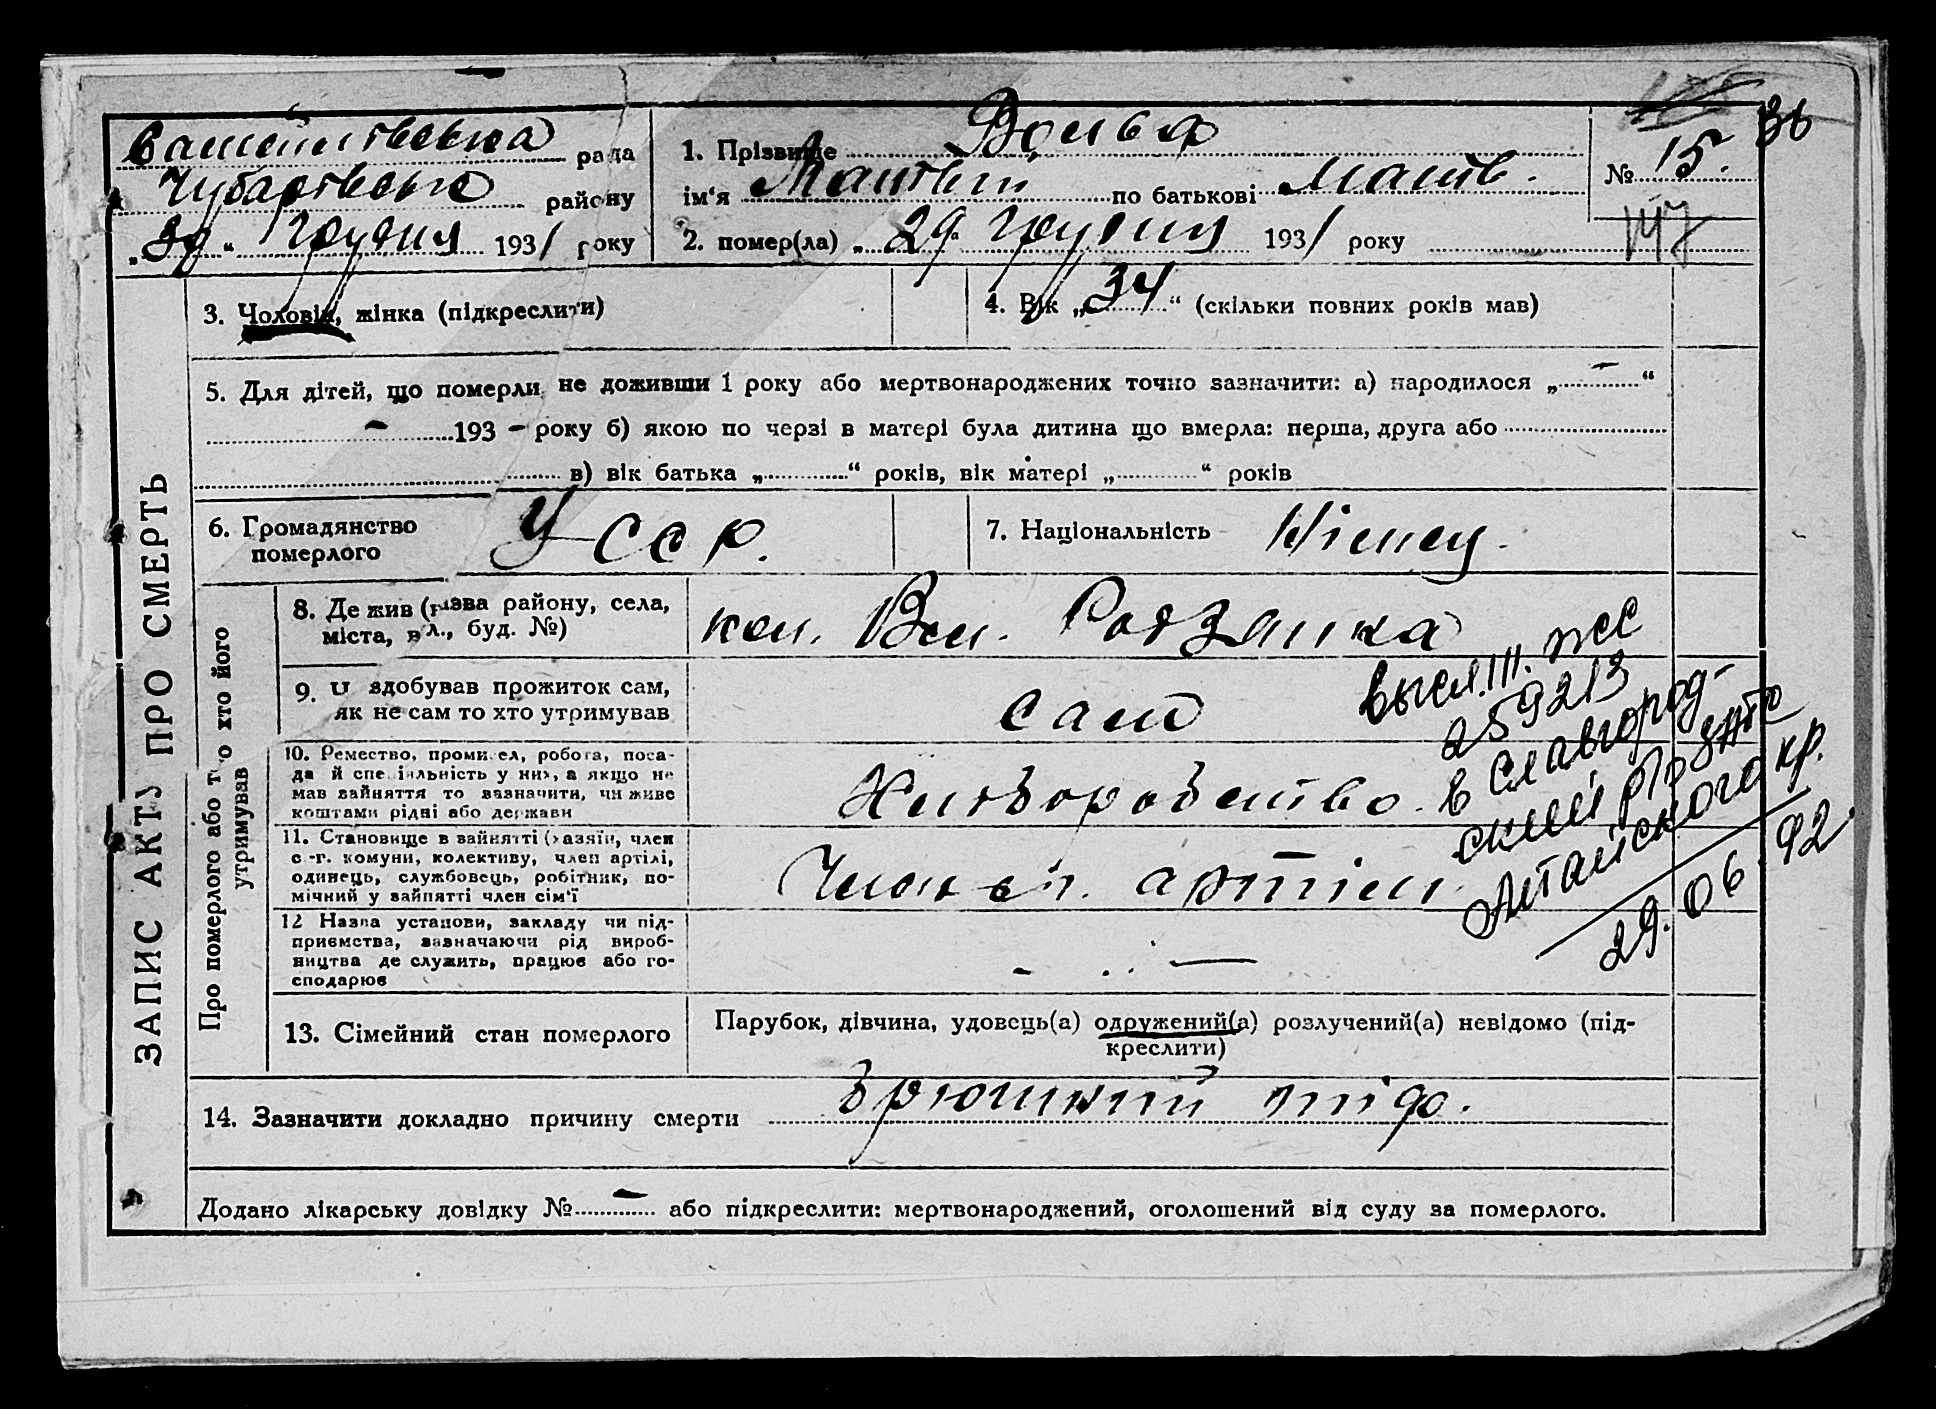 рада
Чубарівського району
„30“ Грудня 1931 року
1. Прізвище Вольф
ім‘я Матвій по батькові Матв.
2. помер(ла) „29“ грудня 1931 року
№ 15.
36
147
ЗАПИС АКТУ ПРО СМЕРТЬ
3. Чоловік, жінка (підкреслити)
4. Вік „34“ (скільки повних років мав)
5. Для дітей, що померли, не доживши 1 року або мертвонароджених точно зазначити: а) народилося „ - “
- 193 - року б) якою по черзі в матері була дитина що вмерла: перша, друга або
в) вік батька „ “ років, вік матері „ “ років
6. Громадянство
померлого
УССР.
7. Національність Німец.
Про померлого або того хто його
утримував
8. Де жив (назва району, села,
міста, вул., буд. №)
кол. Вел. Родзянка
9. Чи здобував прожиток сам,
як не сам то хто утримував
сам
10. Ремество, промисел, робота, поса-
да й спеціальність у них, а якщо не
мав зайняття то зазначити, чи живе
коштами рідні або держави
Хліборобство.
11. Становище в зайнятті (хазяїн, член
с.-г. комуни, колективу, член артілі,
одинець, службовець, робітник, по-
мічний у зайнятті член сім‘ї
Член с.г. артіли
12 Назва установи, закладу чи під-
приємства, зазначаючи рід вироб-
ництва де служить, працює або го-
сподарює
—
13. Сімейний стан померлого
Парубок, дівчина, удовець(а) одружений(а) розлучений(а) невідомо (під-
креслити)
14. Зазначити докладно причину смерти
Брюшний тіф.
Додано лікарську довідку № - або підкреслити: мертвонароджений, оголошений від суду за померлого.
высл.
259213
в Славгород-
ский
Алтайского кр.
29.06.92.